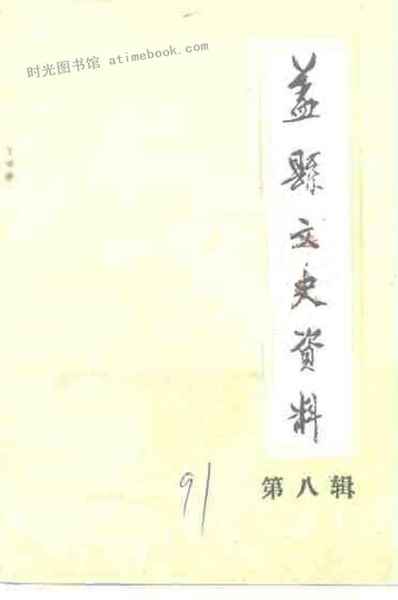 时光图书馆 atimebook.com
盖縣文史資料
第八辑
91